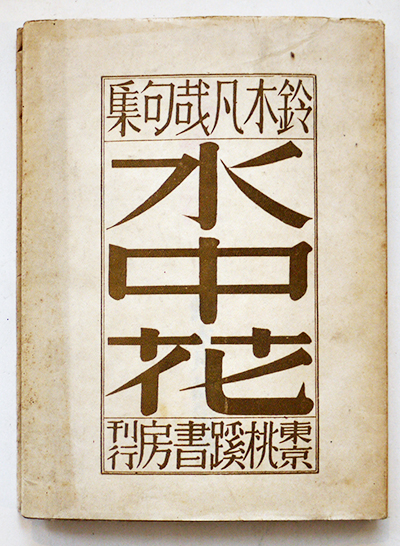 鈴木凡哉句集
水中花
東京桃蹊書房刊行